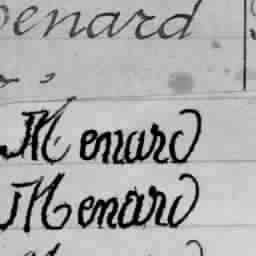 enard
Menard
Menard